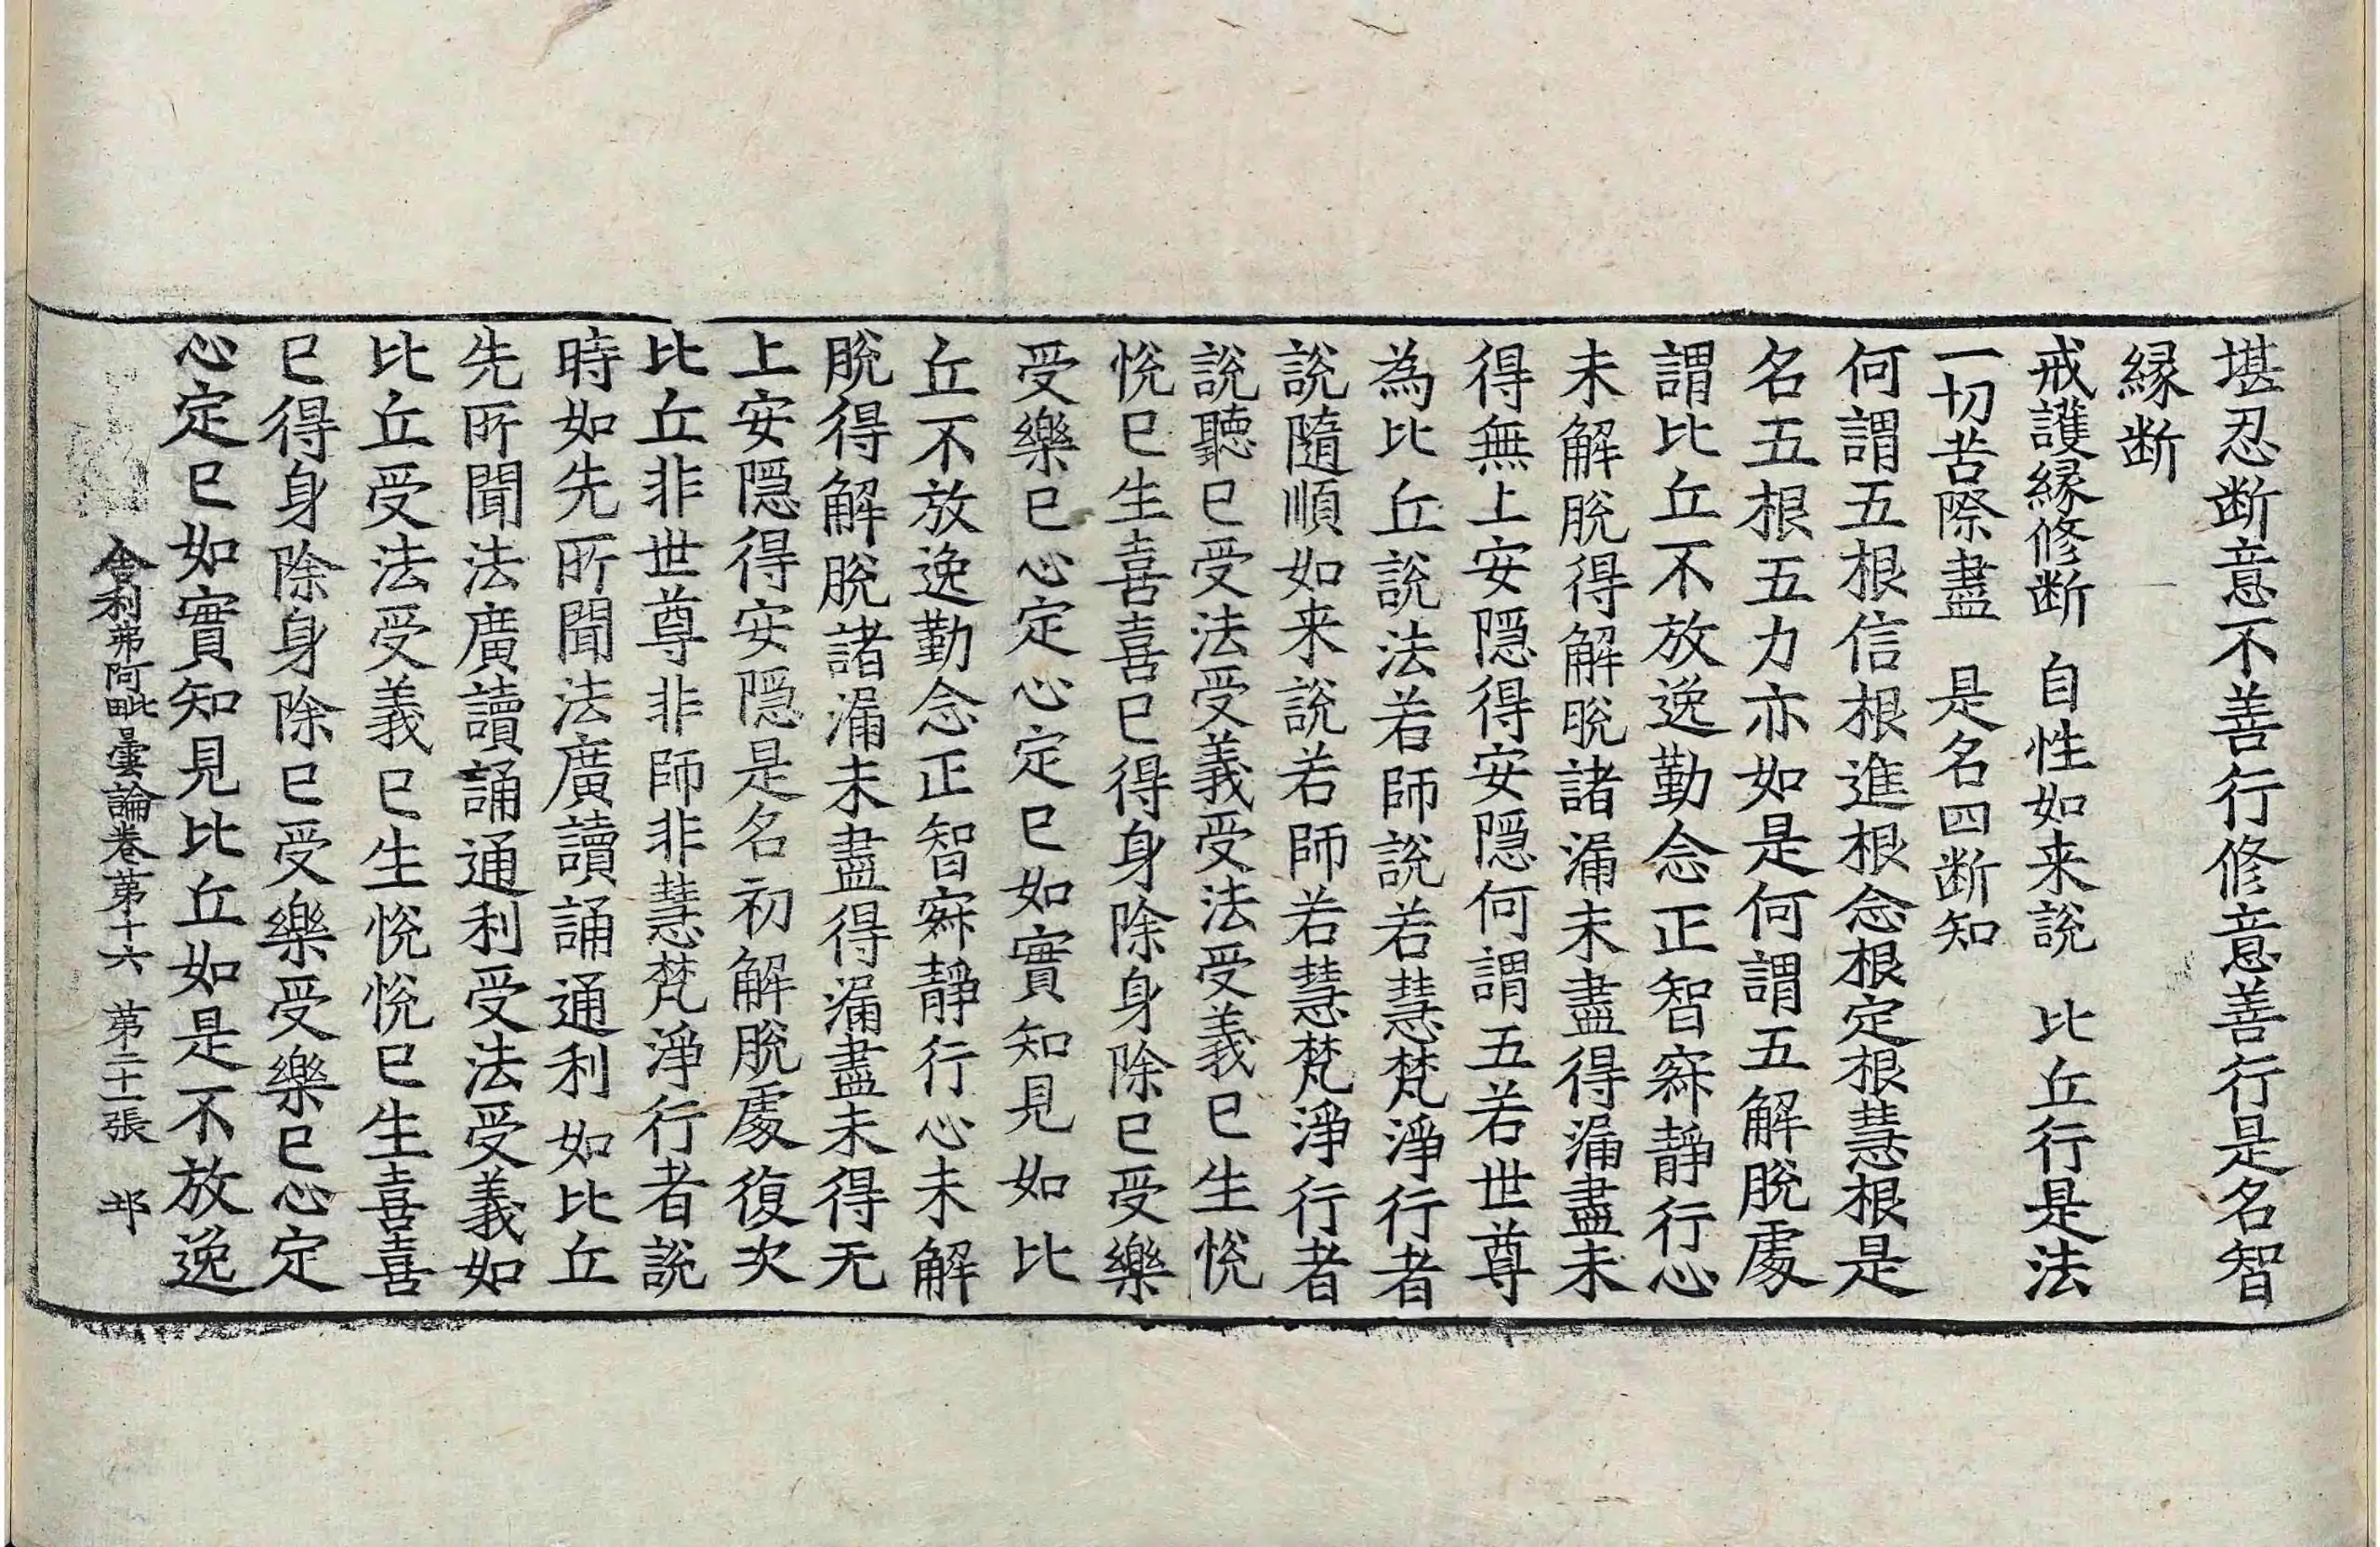 堪忍断意不善行修意善行是名智
縁断
戒護縁修断 自性如来説 比丘行是法
一切苦際盡 是名四断知
何謂五根信根進根念根定根慧根是
名五根五力亦如是何謂五解脱處
謂比丘不放逸勤念正智寂静行心
未解脱得解脱諸漏未盡得漏盡未
得無上安隠得安隠何謂五若世尊
為比丘説法若師説若慧梵淨行者
説隨順如来説若師若慧梵淨行者
説聽已受法受義受法受義已生悦
悦已生喜喜已得身除身除已受樂
受樂已心定心定已如實知見如比
丘不放逸勤念正智寂静行心未解
脱得解脱諸漏未盡得漏盡未得无
上安隠得安隠是名初解脱處復次
比丘非世尊非師非慧梵淨行者説
時如先所聞法廣讀誦通利如比丘
先所聞法廣讀誦通利受法受義如
比丘受法受義已生悦悦已生喜喜
已得身除身除已受樂受樂已心定
心定已如實知見比丘如是不放逸
舎利弗阿毗曇論卷第十六 第二十一張